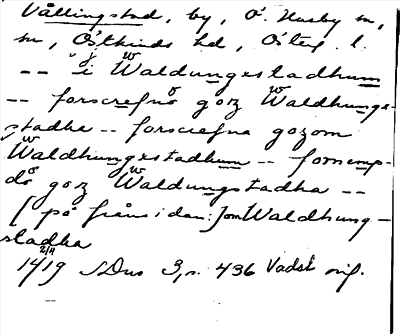 Vållingstad, by, Ö. Husby sn,
sn, Östkinds hd, Österg. l.
-- j Waldungestadhum
-- forscrefno goz Waldhunge-
stadha -- forscrefna gozom
Waldhungestadhum -- fornemp-
do goz Waldungstadha --
[på frånsidan:] om Waldhung-
stadha
1419 2/4 SDns 3, s. 436 Vadst orig.